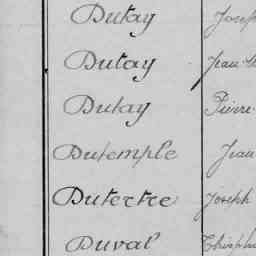 Dutay Josep
Dutay Jean
Dutay Pierre
Dutemple Jean
Dutertre Joseph
Duval